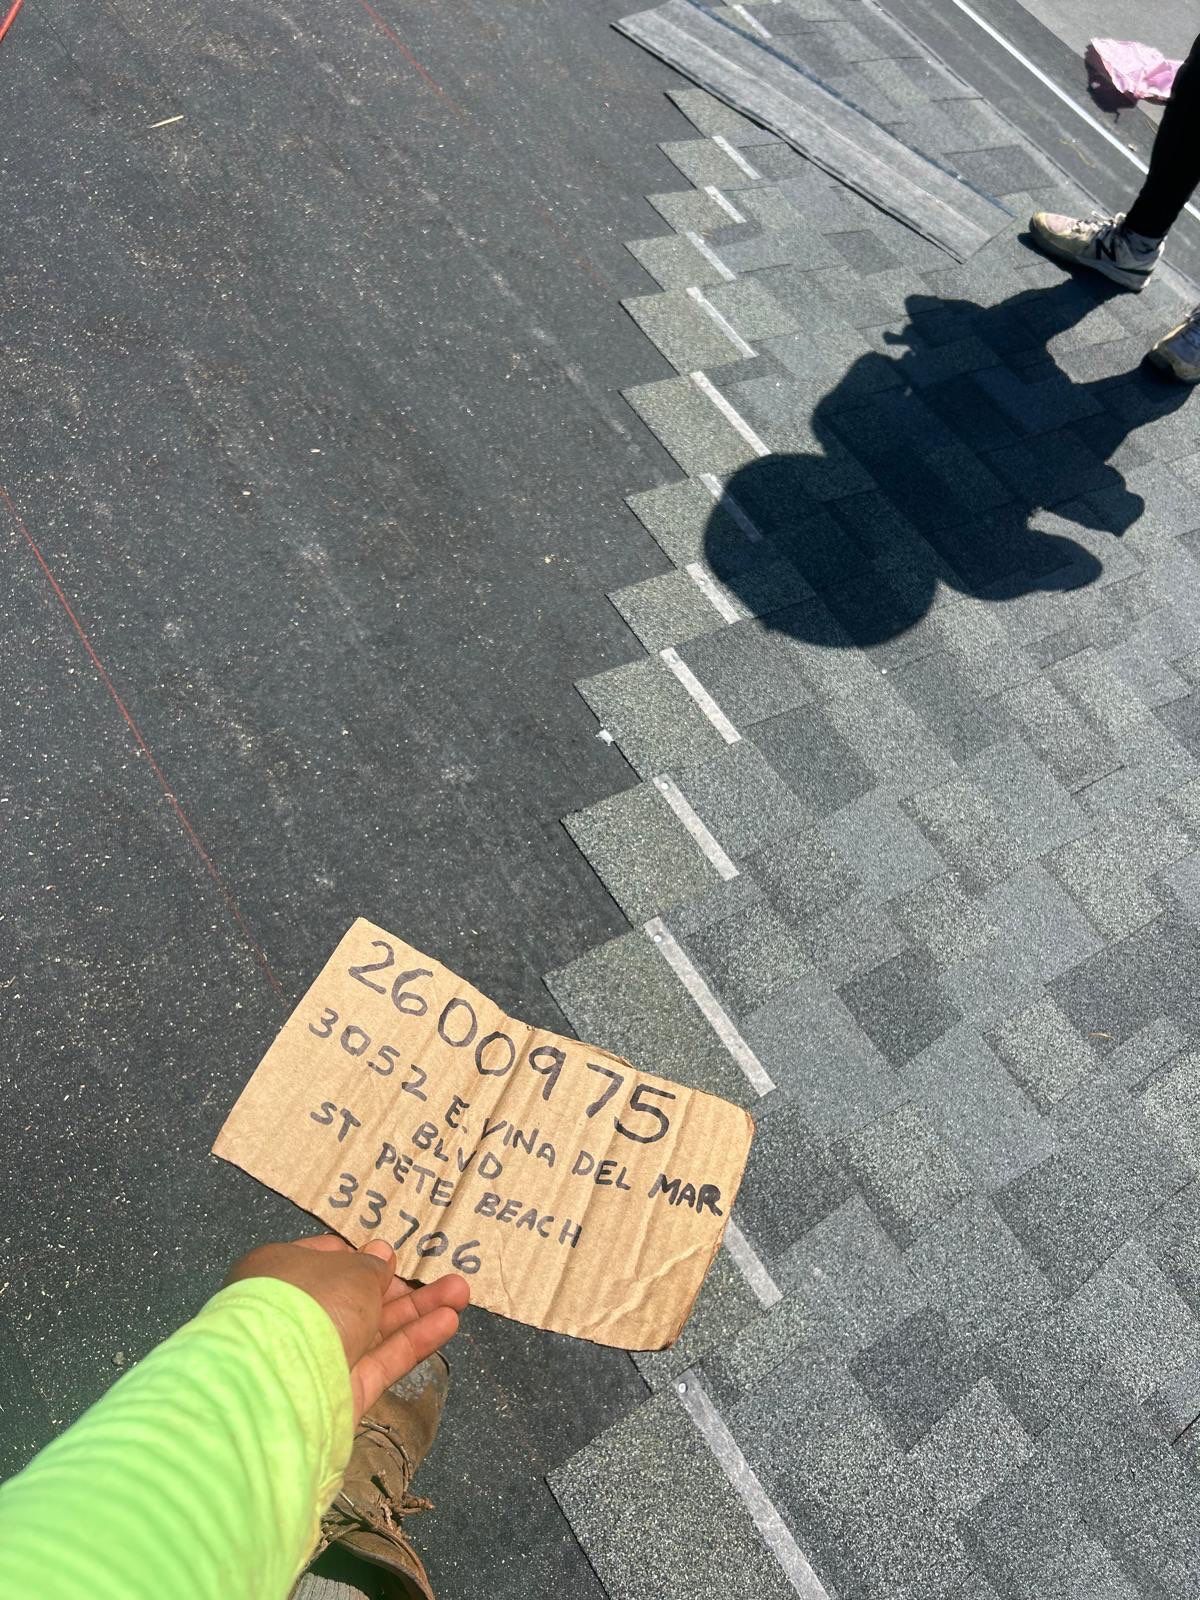 2600975
3052 E. VINA DEL MAR
BLVD
ST PETE BEACH
33706